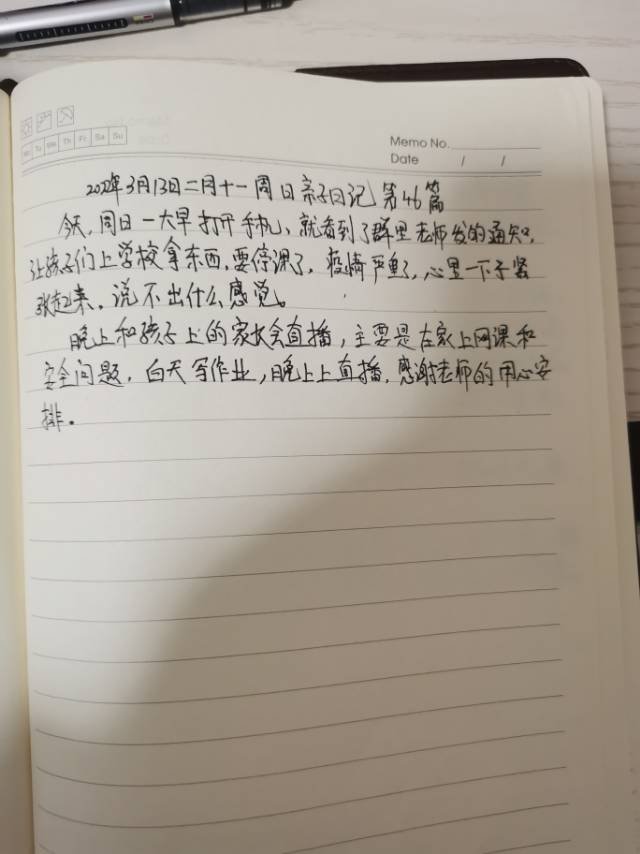 Mo Tu We Th Fr Sa Su
Memo No.
Date / /
2022年3月13日二月十一周日亲子日记 第46篇
今天,周日一大早打开手机,就看到了群里老师发的通知,
让孩子们上学校拿东西,要停课了,疫情严重了,心里一下子紧
张起来,说不出什么感觉。
晚上和孩子上的家长会直播,主要是在家上网课和
安全问题,白天写作业,晚上上直播,感谢老师的用心安
排。